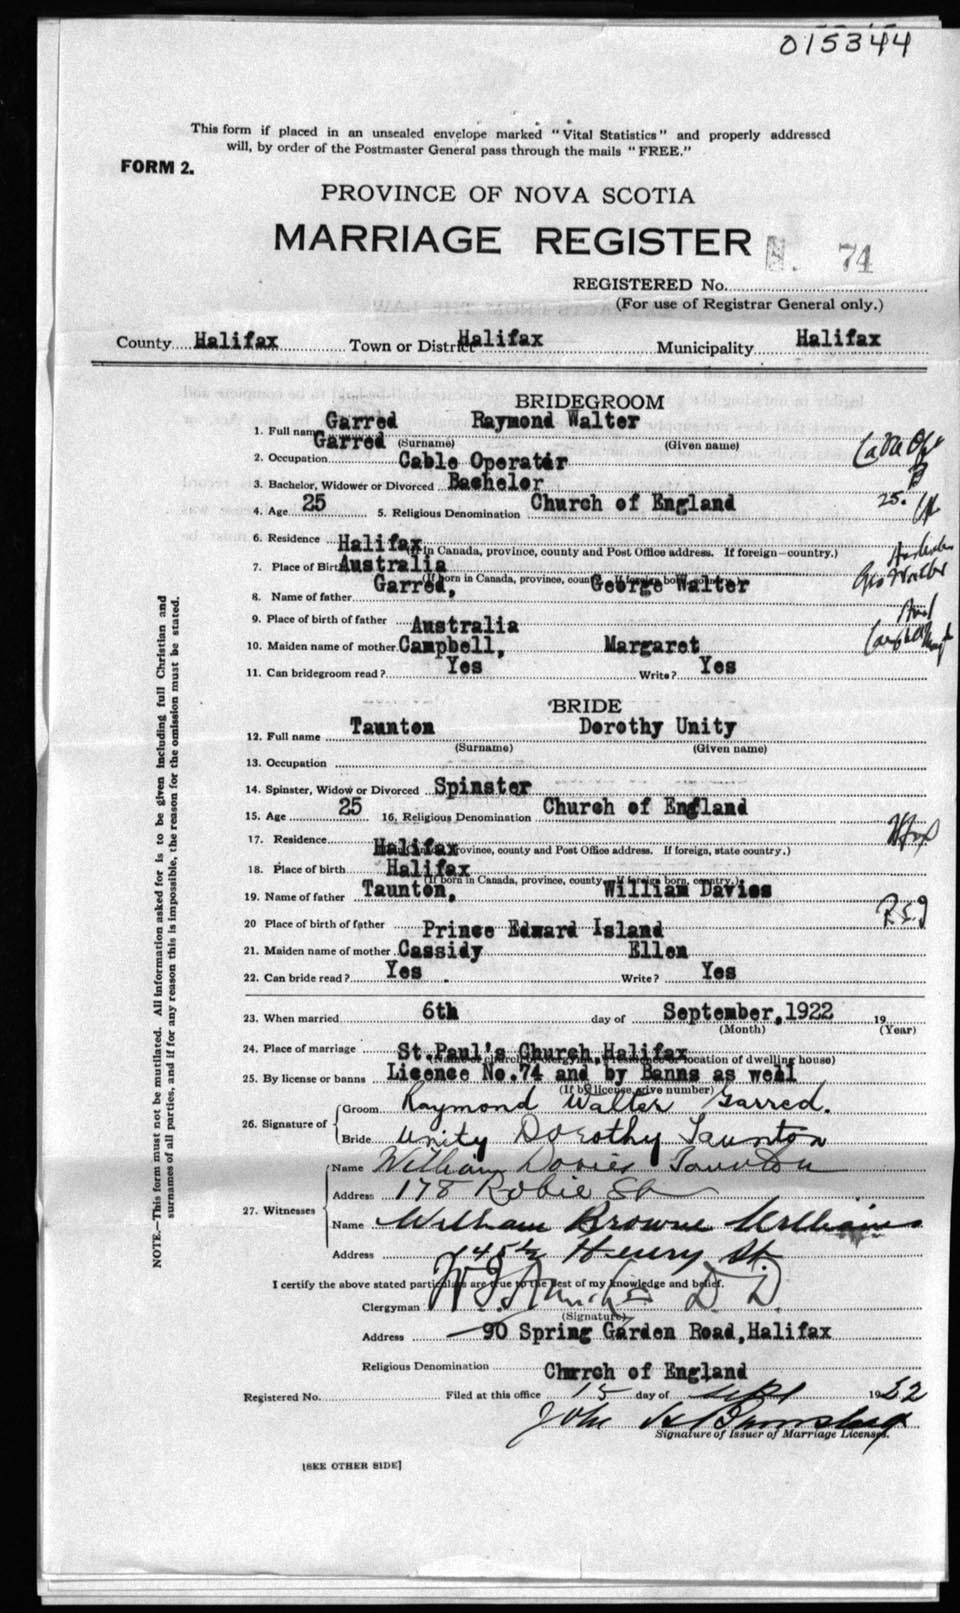 015344
This form if placed in an unsealed envelope marked "Vital Statistics" and properly addressed
will, by order of the Postmaster General pass through the mails "FREE."
FORM 2.
PROVINCE OF NOVA SCOTIA
MARRIAGE REGISTER
74
REGISTERED No.
(For use of Registrar General only.)
County Halifax Town or District Halifax Municipality Halifax
BRIDEGROOM
1. Full name Garred Raymond Walter
Garred (Surname) (Given name)
2. Occupation Cable Operator
3. Bachelor, Widower or Divorced Bachelor B
4. Age 25 5. Religious Denomination Church of England 25.
6. Residence Halifax
(If in Canada, province, county and Post Office address. If foreign—country.)
7. Place of Birth Australia
(If born in Canada, province, county. If foreign born, country.)
8. Name of father Garred, George Walter
9. Place of birth of father Australia
10. Maiden name of mother Campbell, Margaret
11. Can bridegroom read? Yes Write? Yes
BRIDE
12. Full name Taunton Dorothy Unity
(Surname) (Given name)
13. Occupation
14. Spinster, Widow or Divorced Spinster
15. Age 25 16. Religious Denomination Church of England
17. Residence Halifax Hfx
(If in Canada, province, county and Post Office address. If foreign, state country.)
18. Place of birth Halifax
(If born in Canada, province, county. If foreign born, country.)
19. Name of father Taunton, William Davies
20 Place of birth of father Prince Edward Island P.E.I
21. Maiden name of mother Cassidy Ellen
22. Can bride read? Yes Write? Yes
23. When married 6th day of September,1922 19
(Month) (Year)
24. Place of marriage St.Paul's Church Halifax
(Name of church or clergyman's residence or location of dwelling house)
25. By license or banns Licence No.74 and by Banns as well
(If by license, give number)
26. Signature of Groom Raymond Walter Garred.
Bride Unity Dorothy Taunton
27. Witnesses Name William Davies Taunton
Address 178 Robie St
Name William Browne Williams
Address 145½ Henry St.
I certify the above stated particulars are true to the best of my knowledge and belief.
Clergyman D.D.
(Signature)
Address 90 Spring Garden Road,Halifax
Religious Denomination Church of England
Registered No. Filed at this office 15 day of Sept 1922
John
Signature of Issuer of Marriage Licenses.
[SEE OTHER SIDE]
NOTE.—This form must not be mutilated. All information asked for is to be given including full Christian and
surnames of all parties, and if for any reason this is impossible, the reason for the omission must be stated.